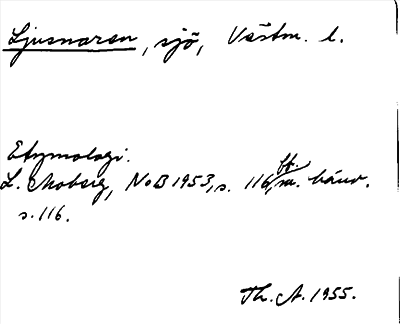 Ljusnaren, sjö, Västm. l.
Etymologi.
L. Moberg, NoB 1953, s. 116 ff. m. hänv.
s. 116.
Th. A. 1955.